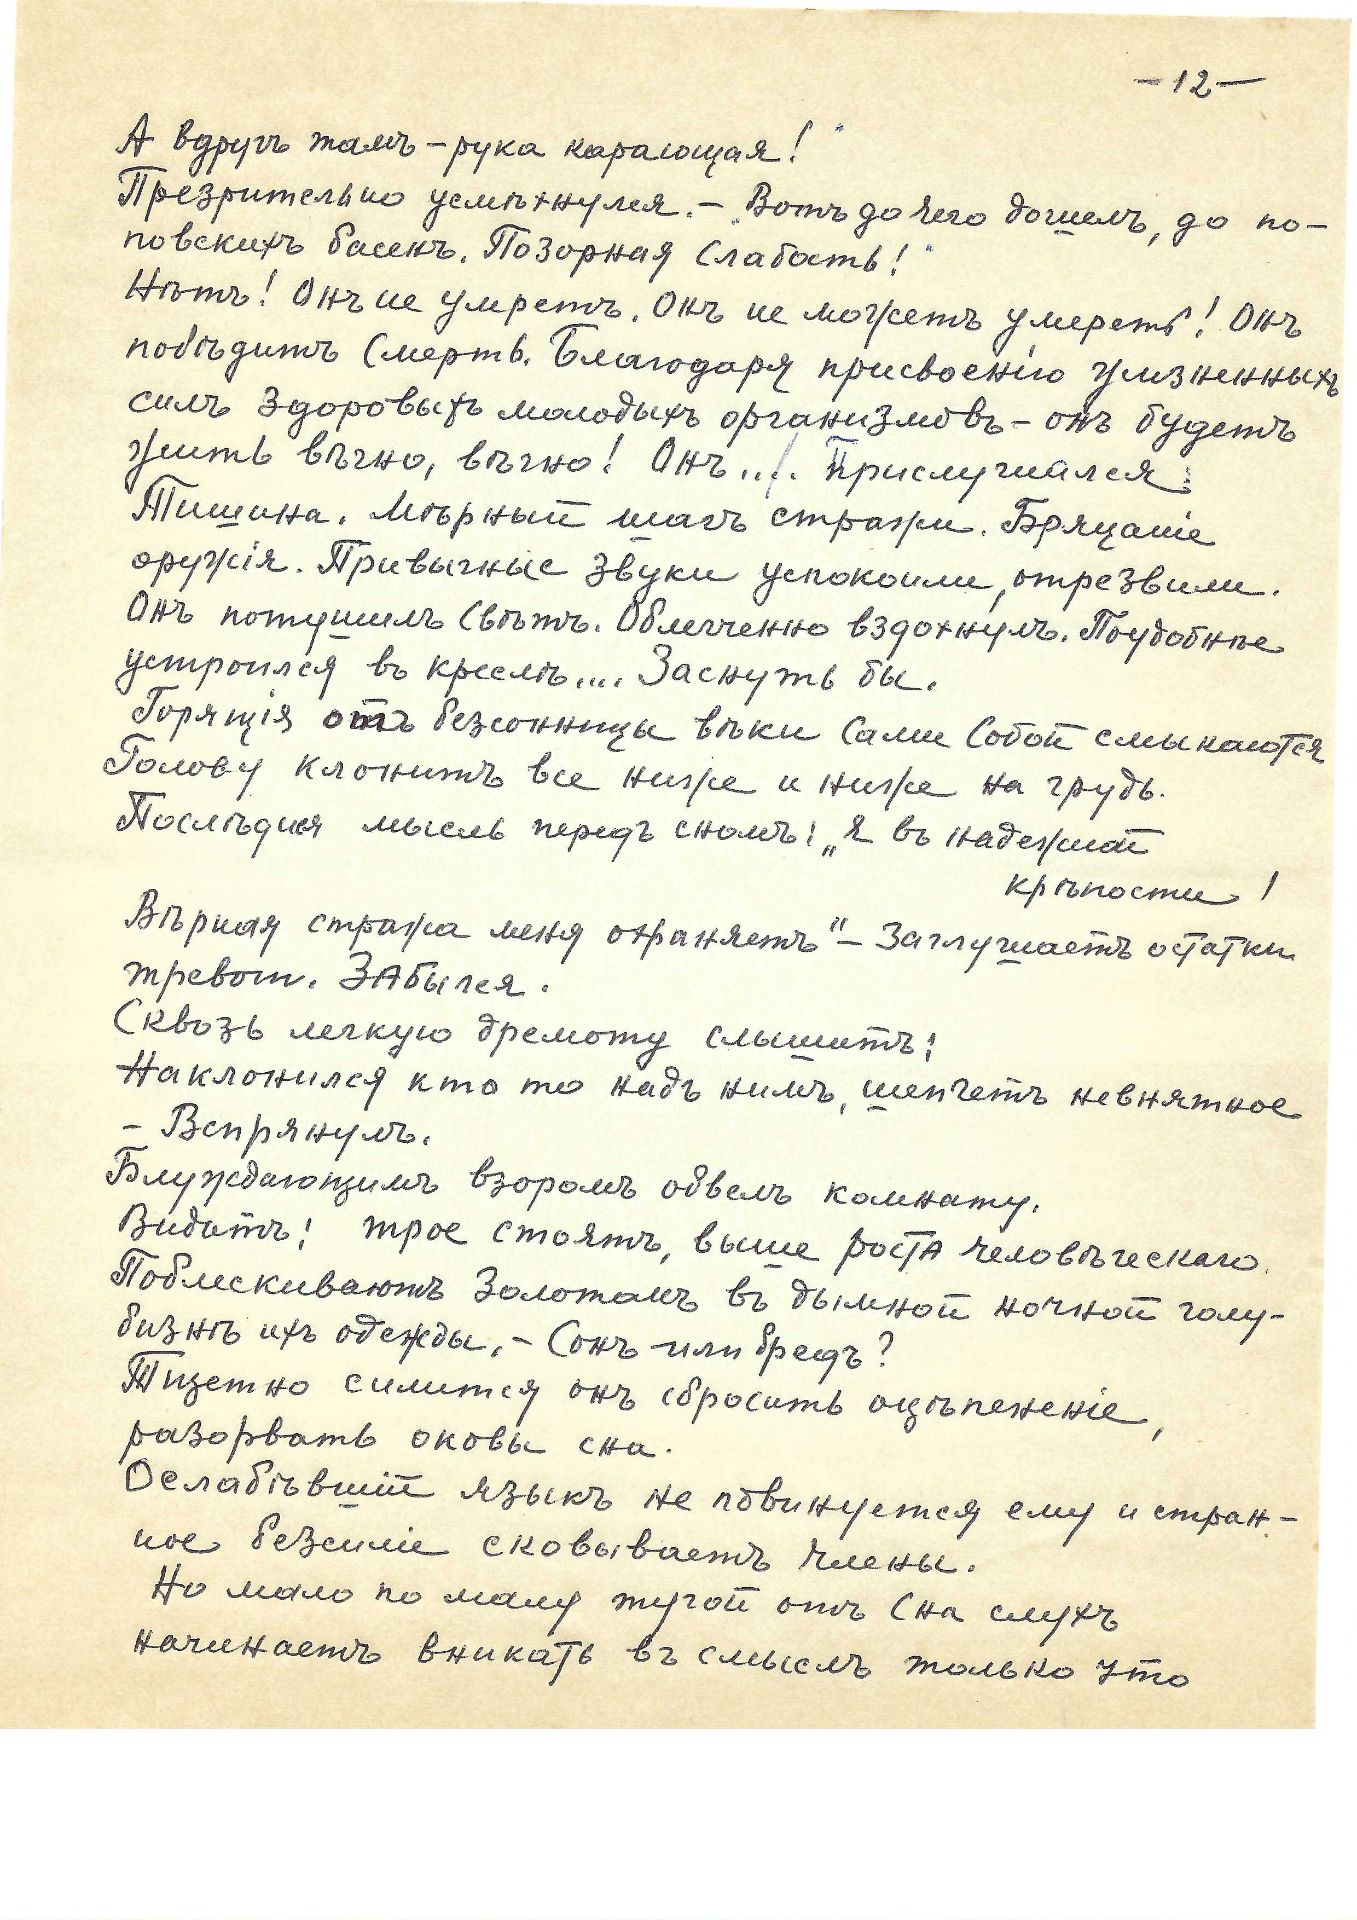 -12-
А вдругъ тамъ - рука карающая!"
Презрительно усмѣхнулся. - "Вотъ до чего дошелъ, до по-
повскихъ басенъ. Позорная слабость!"
Нѣтъ! Онъ не умретъ. Онъ не можетъ умереть! Онъ
побѣдитъ смерть. Благодаря присвоенію жизненныхъ
силъ здоровыхъ молодыхъ организмовъ - онъ будетъ
жить вѣчно, вѣчно! Онъ.... Прислушался:
Тишина. Мѣрный шагъ стражи. Бряцаніе
оружія. Привычные звуки успокоили, отрезвили.
Онъ потушилъ свѣтъ. Облегченно вздохнулъ. Поудобнѣе
устроился въ креслѣ.... Заснуть бы.
Горящія отъ безсонницы вѣки сами собой смыкаются
Голову клонитъ все ниже и ниже на грудь.
Послѣдняя мысль передъ сномъ: „Я въ надежной
крѣпости!
Вѣрная стража меня охраняетъ" - Заглушаетъ остатки
тревоги. Забылся.
Сквозь легкую дремоту слышитъ:
Наклонился кто то надъ нимъ, шепчетъ невнятное
- Вспрянулъ.
Блуждающимъ взоромъ обвелъ комнату.
Видитъ: трое стоятъ, выше роста человѣческаго.
Поблескиваютъ золотомъ въ дымной ночной голу-
бизнѣ ихъ одежды. - Сонъ или бредъ?
Тщетно силится онъ сбросить оцѣпененіе,
разорвать оковы сна.
Ослабѣвшій языкъ не повинуется ему и стран-
ное безсиліе сковываетъ члены.
Но мало по малу тугой отъ сна слухъ
начинаетъ вникать въ смыслъ только что